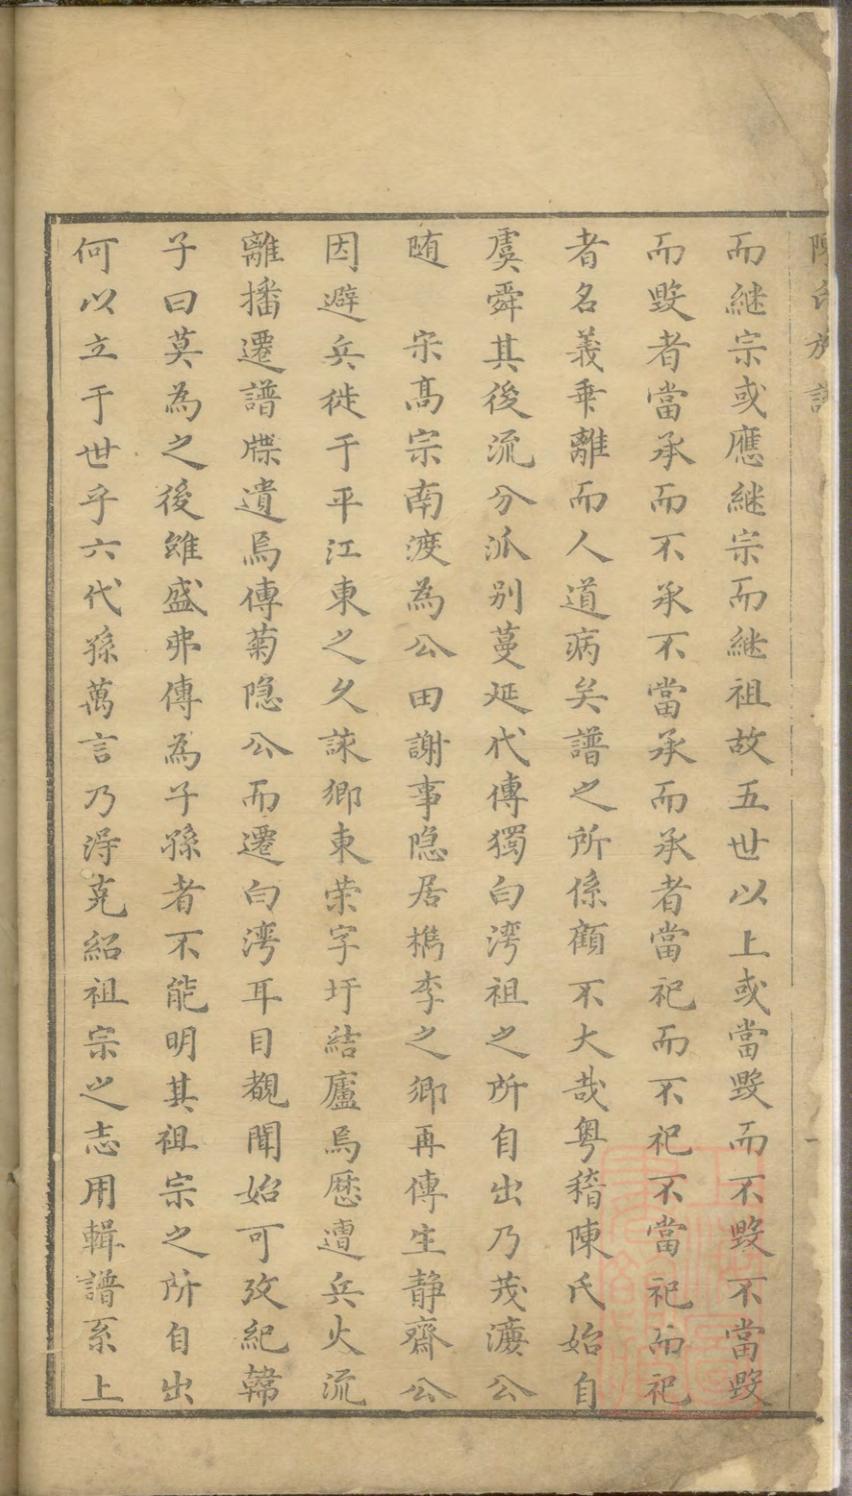 陳氏族譜 一
而継宗或應継宗而継祖故五世以上或當毀而不毀不當毀
而毀者當承而不承不當承而承者當祀而不祀不當祀而祀
者名義乖離而人道病矣譜之所係顧不大哉粤稽陳氏始自
虞舜其後流分派别蔓延代傳獨白湾祖之所自出乃茂濩公
随　宋髙宗南渡為公田謝事隐居檇李之鄉再傳生静齋公
因避兵徙于平江東之久詠鄉東荣字圩結廬焉歷遭兵火流
離播遷譜牒遺焉傳菊隐公而遷白湾耳目覩聞始可攷紀韓
子曰莫為之後雖盛弗傳為子孫者不能明其祖宗之所自出
何以立于世乎六代孫萬言乃淂克紹祖宗之志用輯譜系上